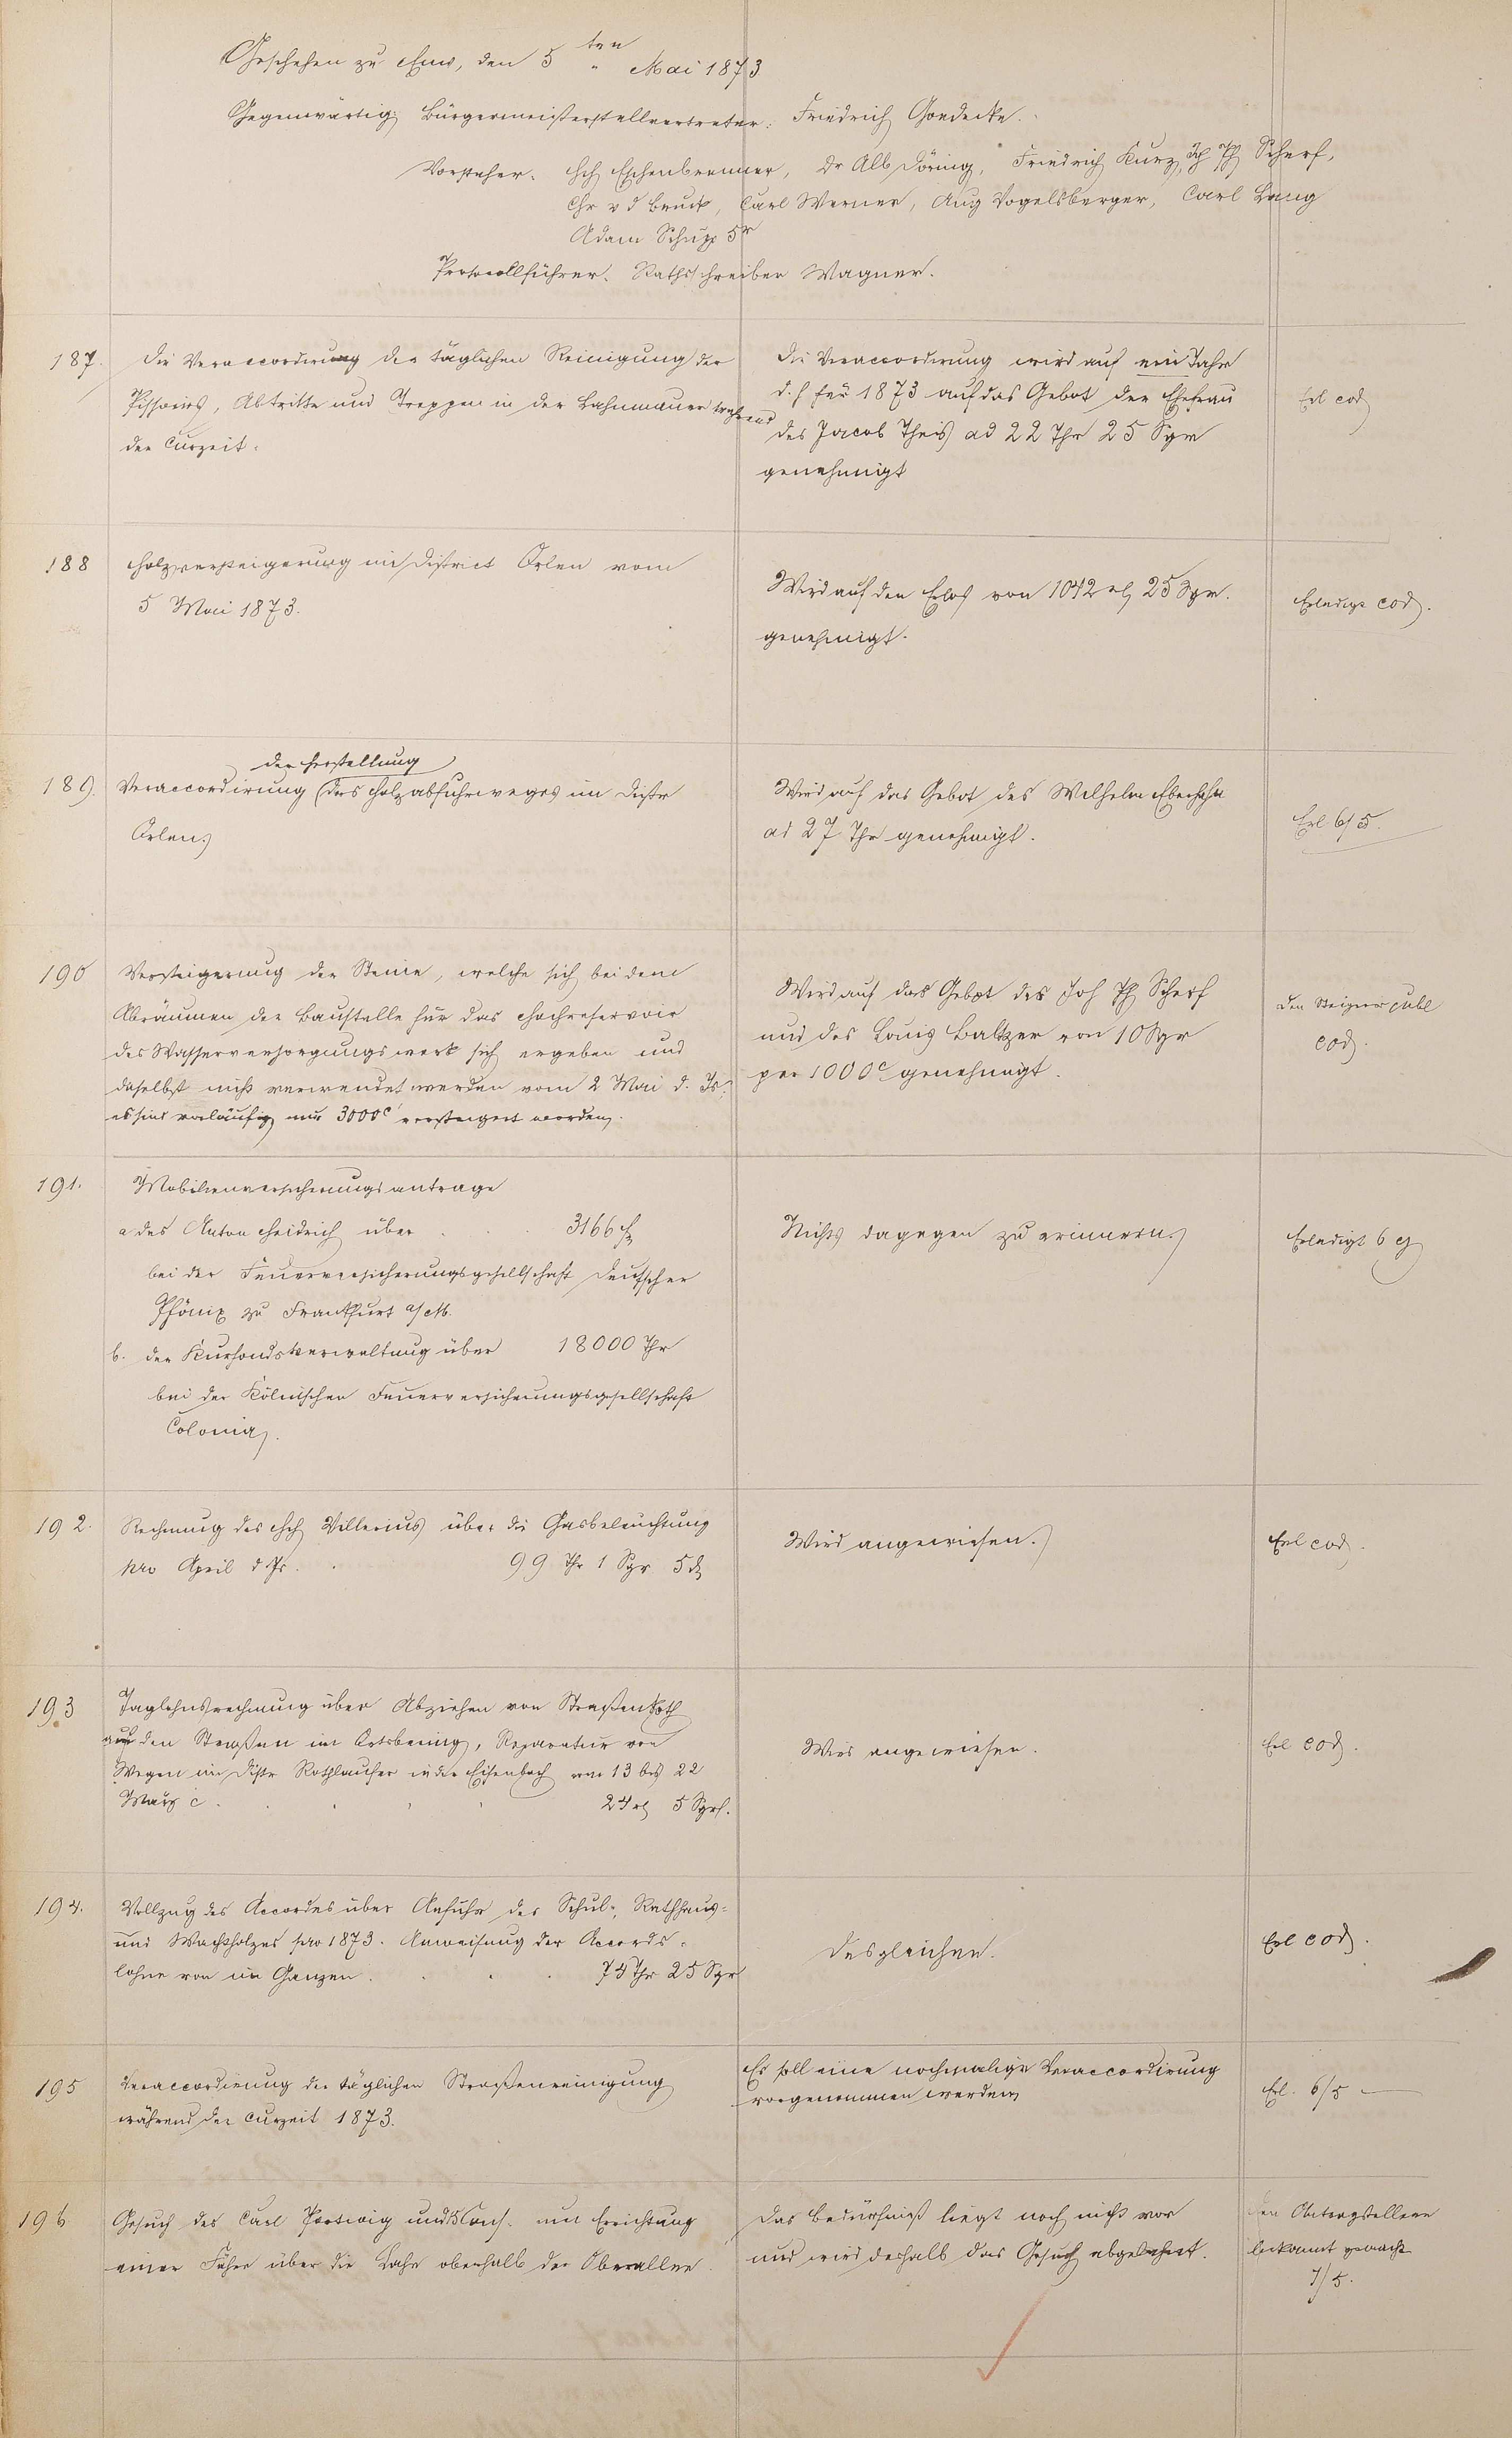 Geschehen zu Ems, den 5ten Mai 1873
Gegenwärtig: Bürgermeisterstellvertreter: Friedrich Goedecke.
Vorsteher: Hch Eschenbrenner, Dr Alb Döring, Friedrich Kurz, Joh Ph Scherf,
Chr v d Bruck, Carl Werner, Aug Vogelsberger, Carl Lang
Adam Schupp 5r
Protocollführer: Rathschreiber Wagner.
187. Die Veraccordirung der täglichen Reinigung der
Pissoirs, Abtritte und Treppen in der Lahnmauer während
der Curzeit.
Die Veraccordirung wird auf ein Jahr
d. h für 1873 auf das Gebot der Ehefrau
des Jacob Theis ad 22 Thr 25 Sgr
genehmigt
Erl eod
188 Holzversteigerung im District Orlen vom
5 Mai 1873.
Wird auf den Erlös von 1042 rl 25 Sgr.
genehmigt.
Erledigt eod.
189. Veraccordirung der Herstellung des Holzabfuhrweges im Distr
Orlen.
Wird auf das Gebot des Wilhelm Eberhahn
ad 27 Thr genehmigt.
Erl 6/5.
190 Versteigerung der Steine, welche sich bei dem
Abräumen der Baustelle für das Hochreservoir
des Wasserversorgungswerk sich ergeben und
daselbst nicht verwendet werden vom 2 Mai d. Js.
es sind vorläufig nur 3000c versteigert worden.
Wird auf das Gebot des Joh Ph Scherf
und des Louis Baltzer von 10 Sgr
per 1000c genehmigt.
Den Steigrer publ
eod.
191. Mobilienversicherungsantrage
a des Anton Heidrich über 3166 f
bei der Feuerversicherungsgesellschaft Deutscher
Phönix zu Frankfurt a/M.
b. der Kurfondsverwaltung über 18000 Thr
bei der Kölnischen Feuerversicherungsgesellschaft
Colonia.
Nichts dagegen zu erinnern.
Erledigt 6
192. Rechnung des Hch Villerius über die Gasbeleuchtung
pro April d Js. 99 Thr 1 Sgr 5 d
Wird angewiesen.
Erl eod.
193 Taglohnsrechnung über Abziehen von Straßenkoth
auf den Straßen im Ortsbering, Reparatur von
Wegen im Distr Rothlaufer in der Eisenbach vom 13 bis 22
März c. 24 rl 5 Sgr.
Wird angewiesen.
Erl eod.
194. Vollzug des Accordes über Anfuhr des Schul-, Rathhaus-
und Wachtholzes pro 1873. Anweisung der Accords-
lohne von im Ganzen. 74 Thr 25 Sgr
Desgleichen.
Erl eod.
195 Veraccordirung der täglichen Straßenreinigung
während der Curzeit 1873.
Es soll eine nochmalige Veraccordirung
vorgenommen werden
Erl. 6/5
196 Gesuch des Carl und Cons. um Errichtung
einer Fähre über die Lahn oberhalb der Oberallee.
Das Bedürfniß liegt noch nicht vor
und wird deshalb das Gesuch abgelehnt.
Den Antragstellern
bekannt gemacht
7/5.